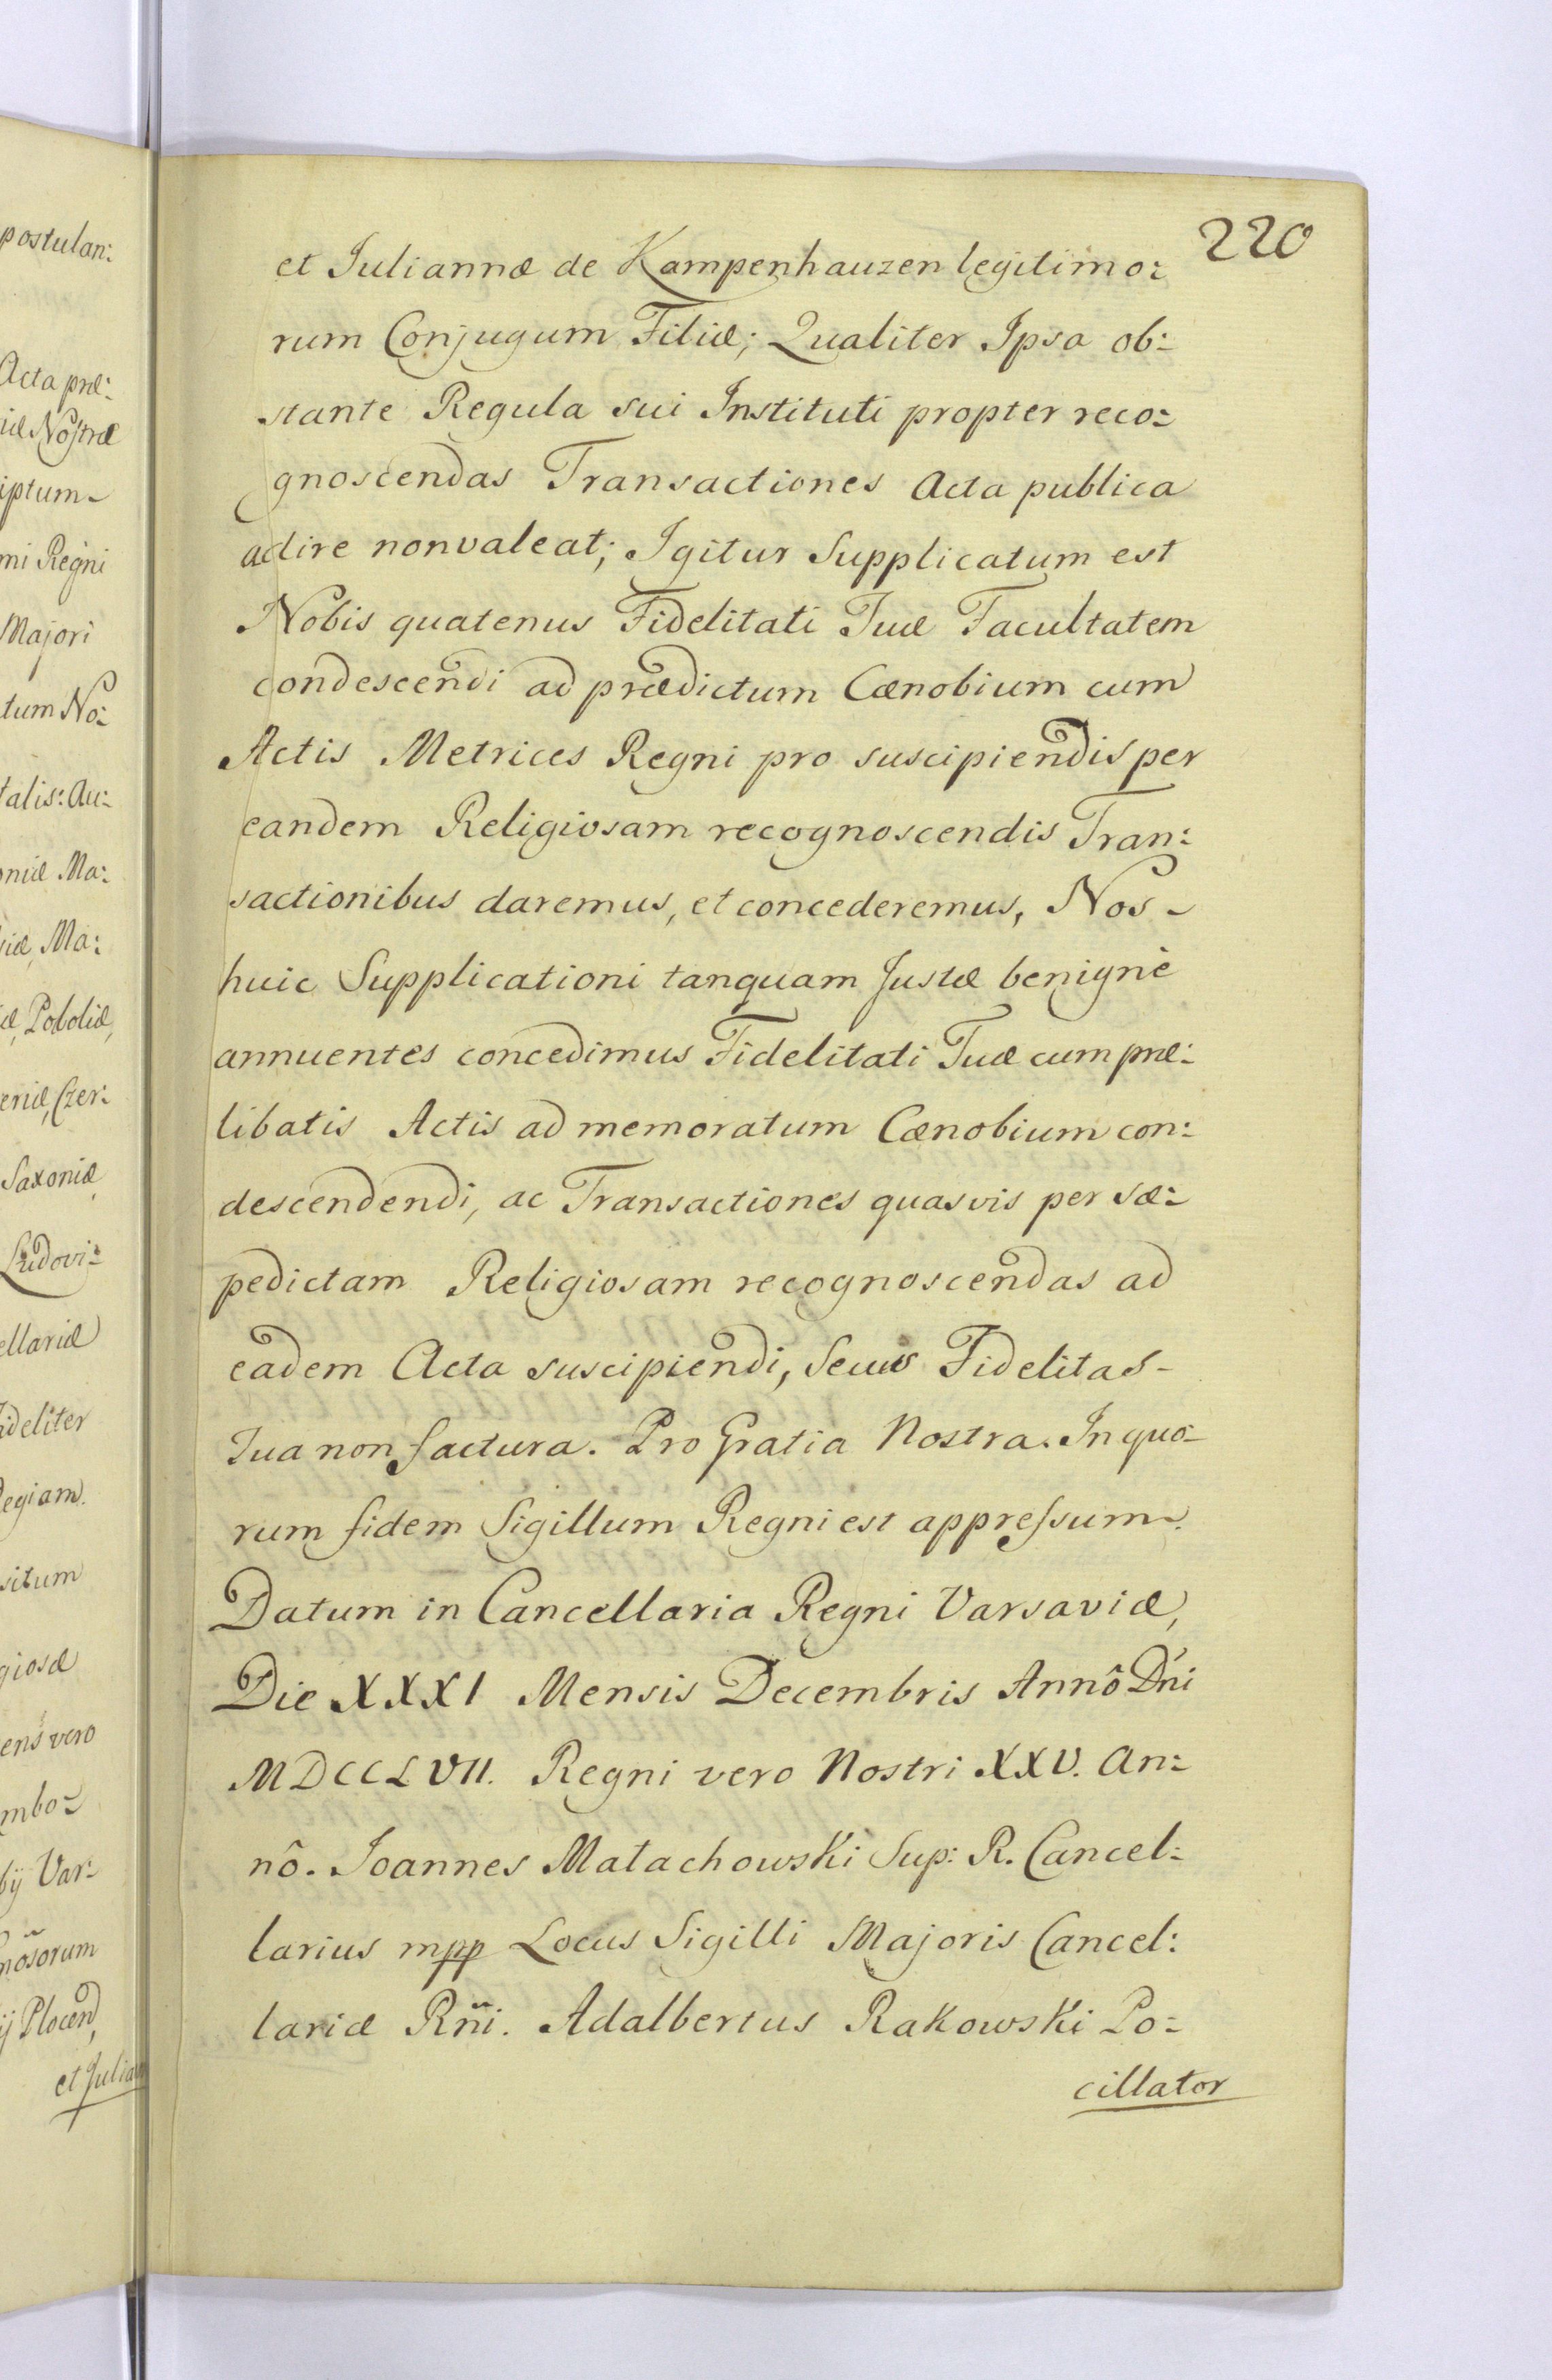 220
et Juliannæ de Kampenhauzen legitimo:
rum Conjugum Filiæ; Qualiter Ipsa ob:
stante Regula sui Instituti propter reco:
gnoscendas Transactiones Acta publica
adire nonvaleat; Igitur Supplicatum est
Nobis quatenus Fidelitati Tuæ Facultatem
condescendi ad prædictum Cænobium cum
Actis Metrices Regni pro suscipiendis per
eandem Religiosam recognoscendis Tran:
sactionibus daremus, et concederemus, Nos
huic Supplicationi tanquam Justæ benignè
annuentes concedimus Fidelitati Tuæ cum præ:
libatis Actis ad memoratum Cænobium con:
descendendi, ac Transactiones quasvis per sæ:
pedictam Religiosam recognoscendas ad
eadem Acta suscipiendi, Secus Fidelitas
Tua non factura. Pro Gratia Nostra. In quo:
rum fidem Sigillum Regni est appressum.
Datum in Cancellaria Regni Varsaviæ,
Die XXXI Mensis Decembris Annô Dńi
MDCCLVII. Regni vero Nostri XXV. An:
nô. Joannes Matachowski Sup: R. Cancel:
larius mpp Locus Sigilli Majoris Cancel:
lariæ Rñi. Adalbertus Rakowski Po:
cillator
postulan:
Acta præ:
iæ Nostræ
iptum
mi Regni
Majori
tum No:
talis: Au:
oniæ Ma:
iæ, Ma:
æ, Podoliæ,
eniæ, Czer:
Saxoniæ
Ludovi:
ellariæ
fideliter
Regiam.
situm
giosæ
ens vero
mbo:
bÿ Var:
nosorum
ij Plocen,
et Julian